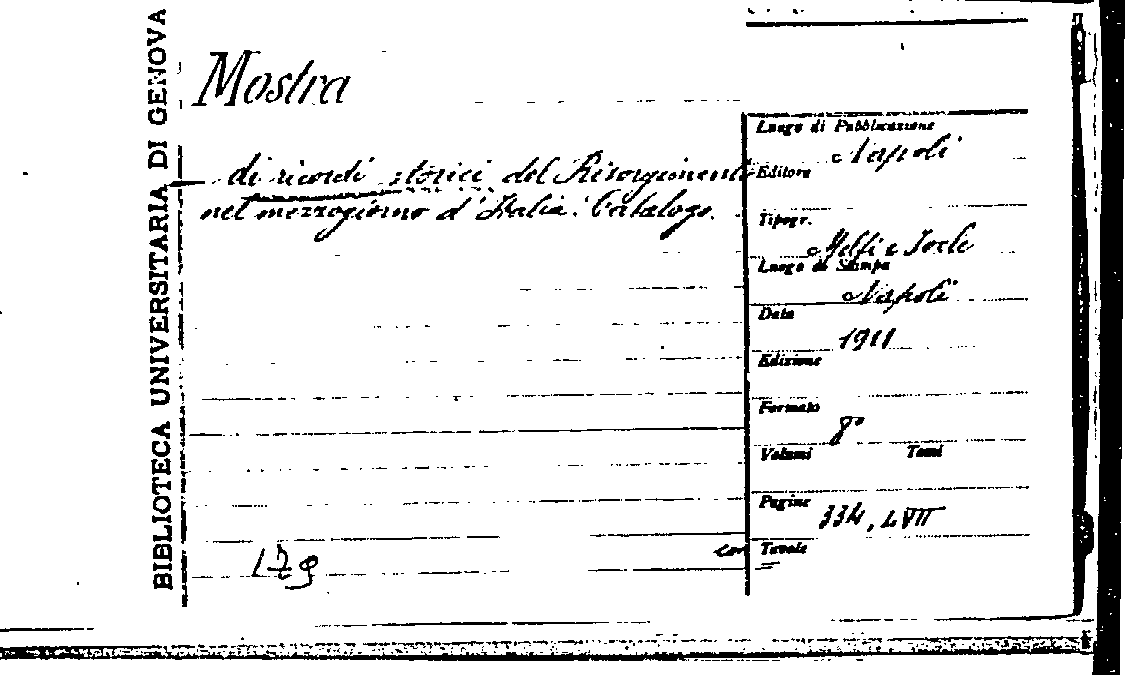 BIBLIOTECA UNIVERSITARIA DI GENOVA
Mostra
di ricordi storici del Risorgimento
nel mezzogiorno d'Italia. Catalogo.
179
Luogo di Pubblicazione
Napoli
Editore
Tipogr.
Melfi e Joele
Luogo di Stampa
Napoli
Data
1911
Edizione
Formato
8°
Volumi Tomi
Pagine
334, LVII
con Tavole